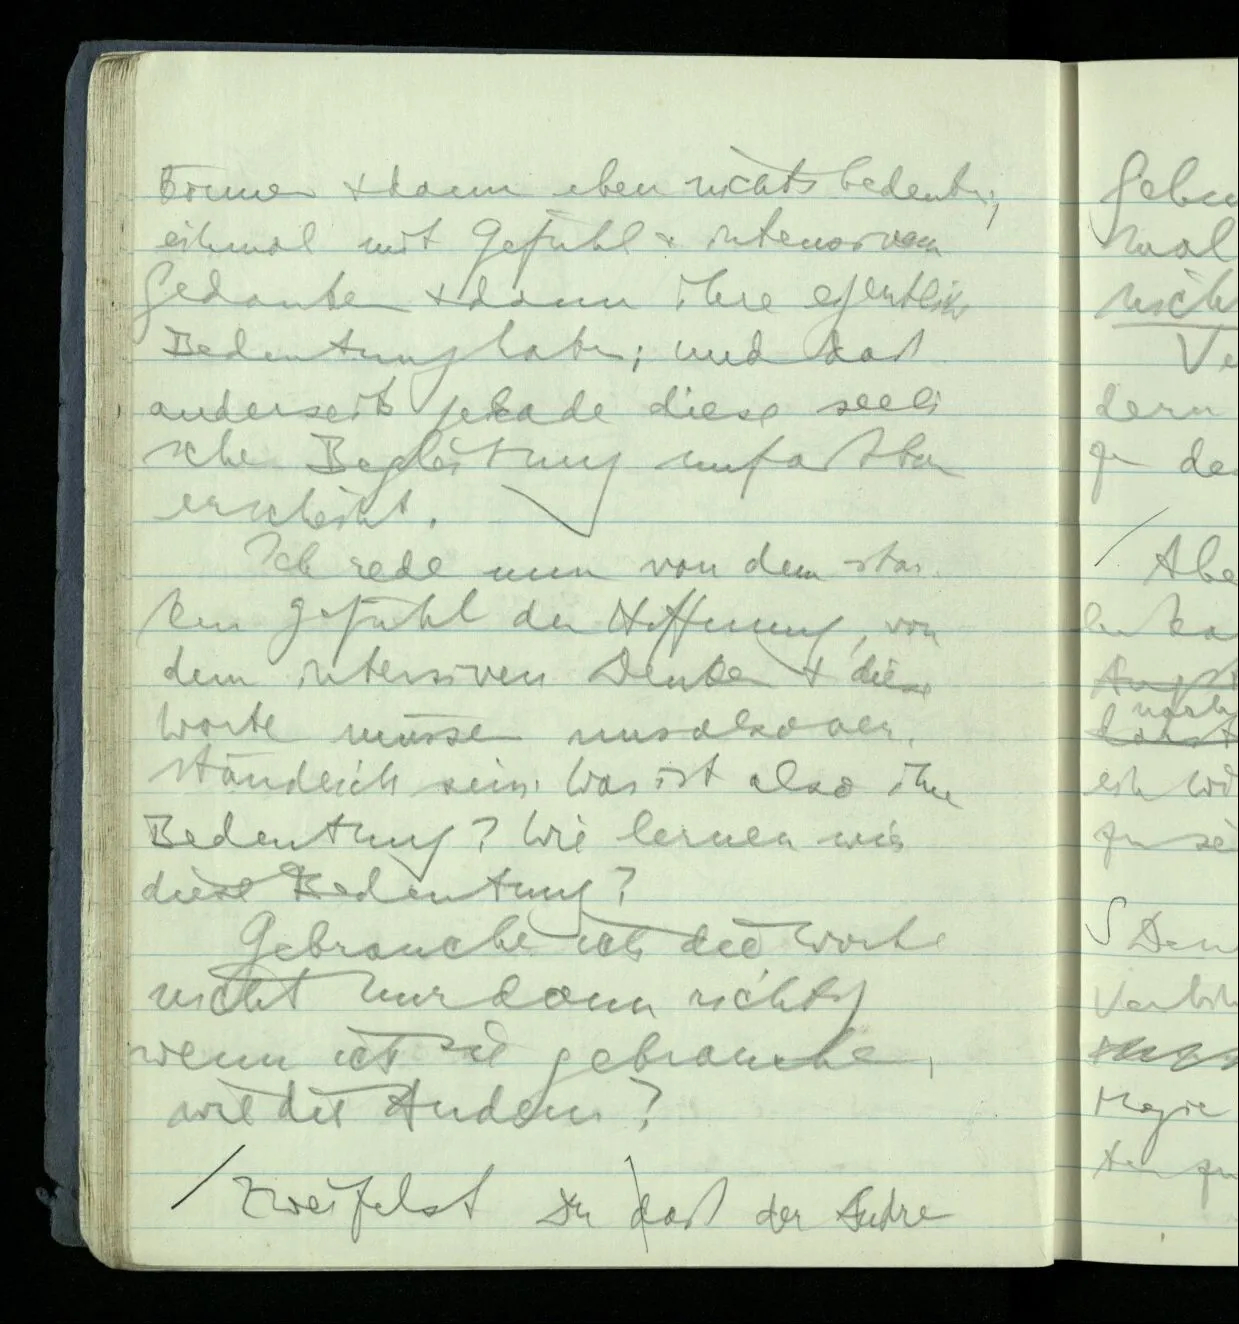 können & dann eben nichts bedeuten;
einmal mit Gefühl & intensiven
Gedanken & dann ihre eigentliche
Bedeutung haben; und daß
anderseits gerade diese seeli
sche Begleitung unfaßbar
erscheint.
Ich rede nun von dem star-
ken Gefühl der Hoffnung, von
dem intensiven Denken & diese
Worte müssen uns also ver-
ständlich sein. Was ist also ihre
Bedeutung? Wie lernen wir
diese Bedeutung?
Gebrauche ich die Worte
nicht nur dann richtig
wenn ich sie gebrauche,
wie die Andern?
/ Zweifelst Du daß der Andre
Mal
nich
Ve
dern
de
/ Abe
ein
S Den